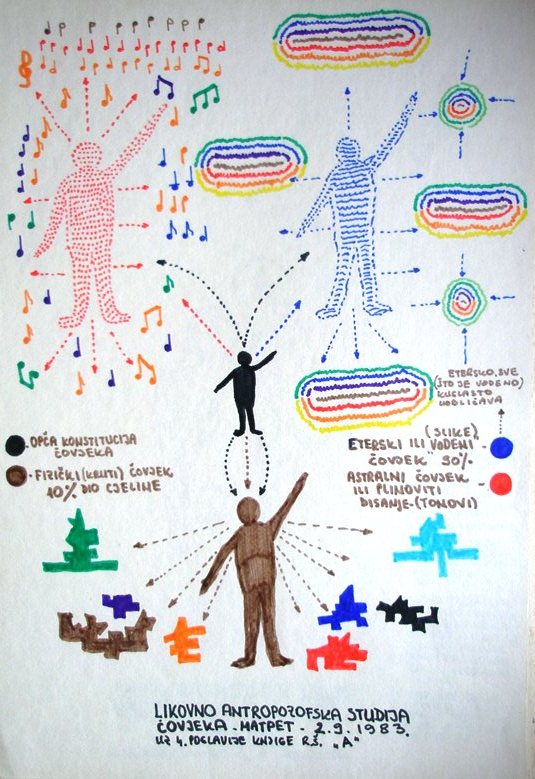 ETERSKO, SVE
(ŠTO JE VODENO)
KUGLASTO
UOBLIČAVA
- OPĆA KONSTITUCIJA
ČOVJEKA
- FIZIČKI (KRUTI) ČOVJEK
10% DIO CJELINE
(SLIKE)
ETERSKI ILI VODENI -
ČOVJEK" 90% -
ASTRALNI ČOVJEK -
ILI PLINOVITI
DISANJE - (TONOVI)
LIKOVNO ANTROPOZOFSKA STUDIJA
ČOVJEKA - MATPET - 2.9.1983.
UZ 4. POGLAVLJE KNJIGE R.Š. „A"